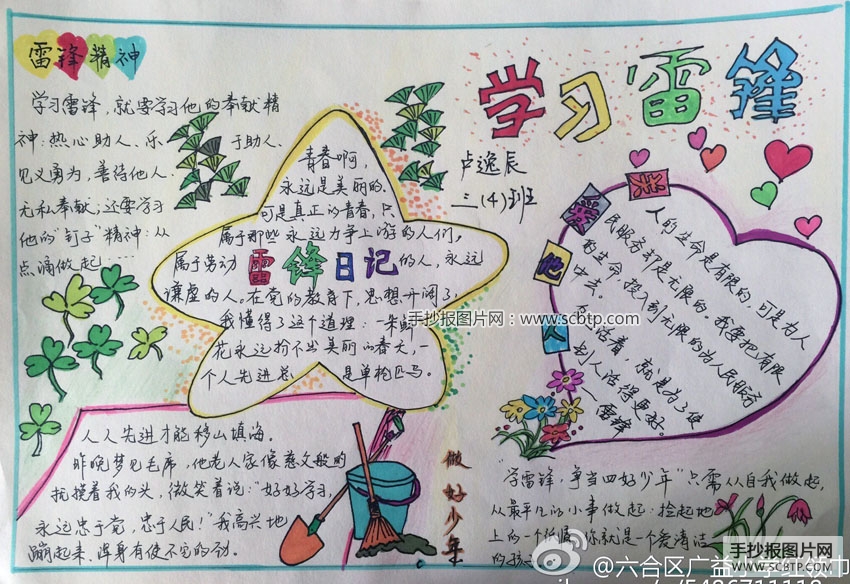 雷锋精神
学习雷锋
学习雷锋，就要学习他的奉献精
神：热心助人、乐于助人、
见义勇为，善待他人、
无私奉献；还要学习
他的“钉子”精神：从
点滴做起……
卢逸辰
三（4）班
青春啊，
永远是美丽的，
可是真正的青春，只
属于那些永远力争上游的人们，
属于劳动 雷锋日记 的人，永远
谦虚的人。在党的教育下，思想开阔了，
我懂得了这个道理：一朵鲜
花永远扮不出美丽的春天，一
个人先进总 是单枪匹马。
人人先进才能移山填海。
昨晚梦见毛席，他老人家像慈父般的
抚摸着我的头，微笑着说：“好好学习，
永远忠于党，忠于人民！”我高兴地
蹦起来、浑身有使不完的劲。
美
爱
他
人
人的生命是有限的，可是为人
民服务却是无限的。我要把有限
的生命，投入到无限的为人民服务
中去。
活着，就是为了使
别人活得更好。
—雷锋
做好少年
“学雷锋，争当四好少年”只需从自我做起，
从最平凡的小事做起：捡起地
上的一个纸屑，你就是一个爱清洁
的孩
手抄报图片网：www.scbtp.com
@六合区广益
手抄报图片网
WWW.SCBTP.COM